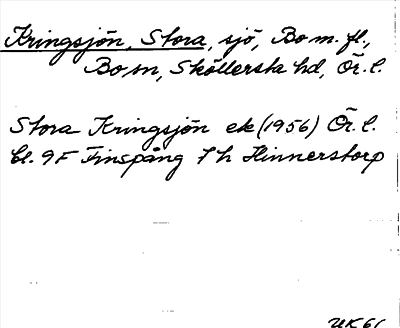 Kringsjön, Stora, sjö, Bo m. fl.,
Bo sn, Sköllersta hd, Ör. l.
Stora Kringsjön ek (1956) Ör. l.
bl. 9F Finspång 7h Hinnerstorp